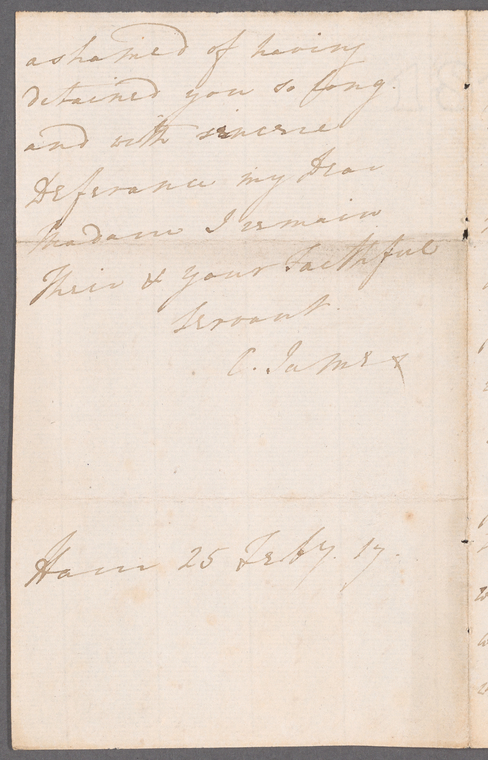 ashamed of having
detained you so long.
and with sincere
Deferance my Dear
Madam I remain
Their & your Faithful
Servant.
C. James
Ham 25 Feby. 17.